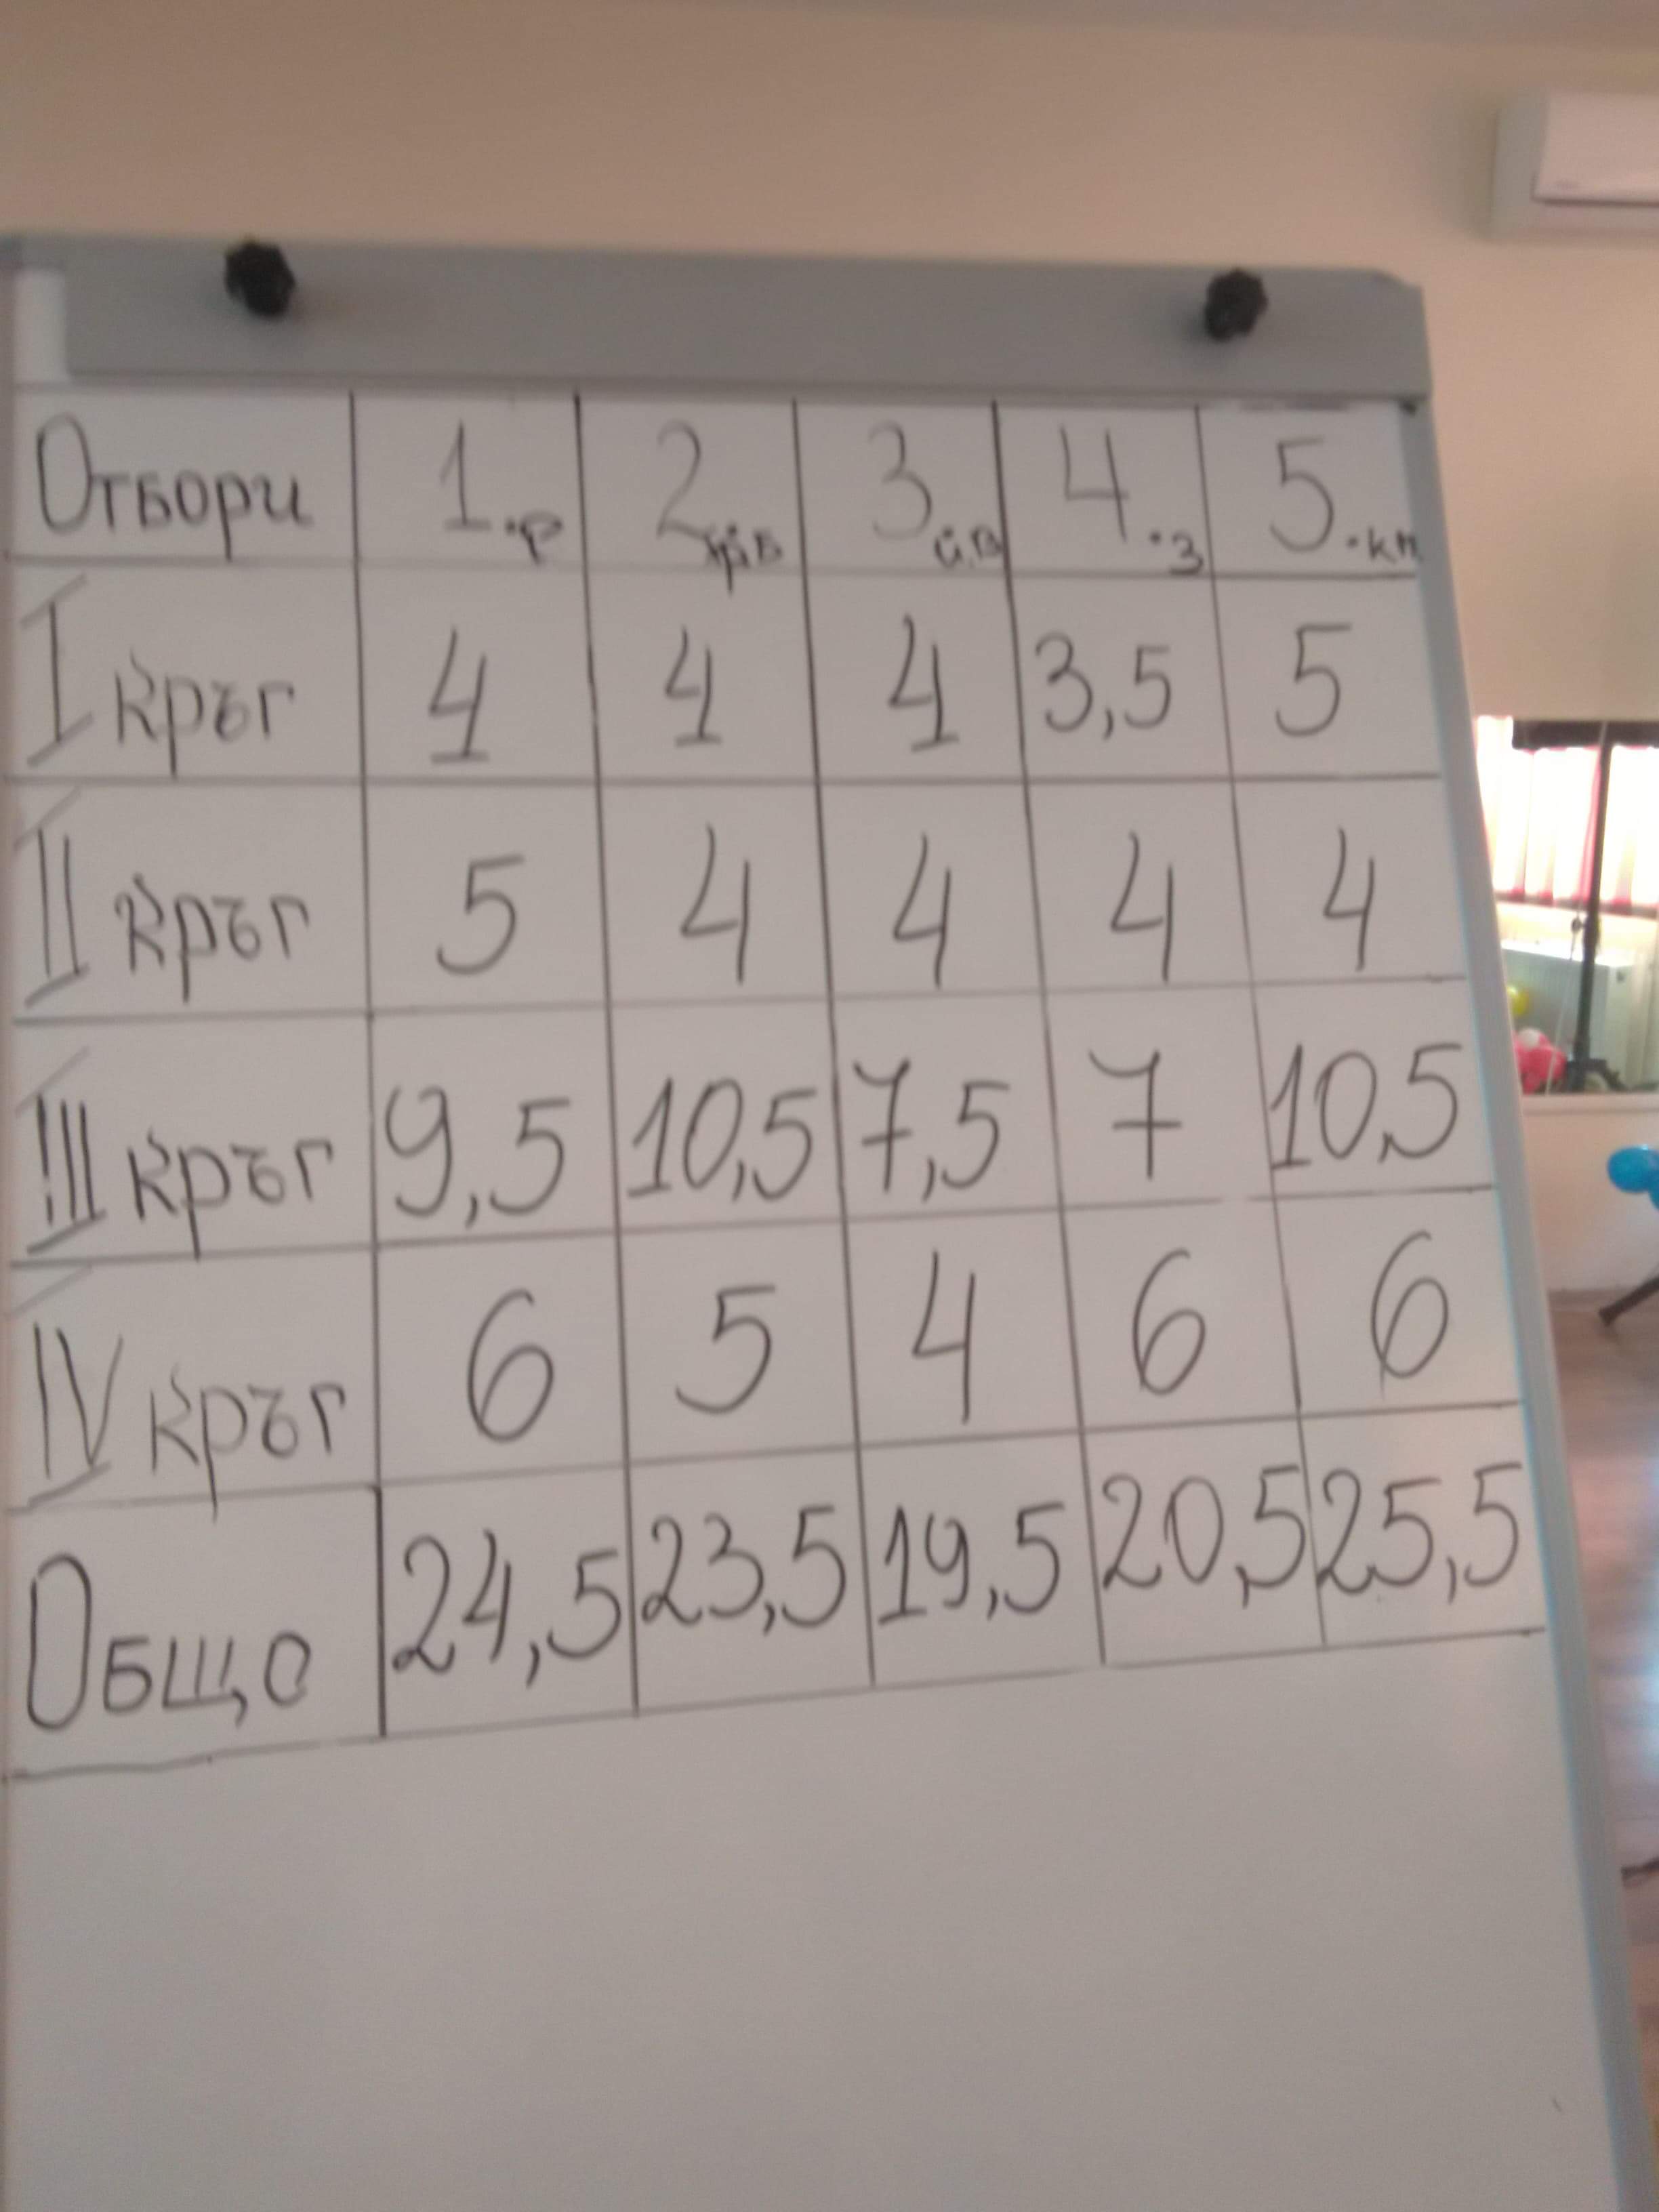 Отбори 1.р 2 3 й.в 4.з 5.кп
I кръг 4 4 4 3,5 5
II кръг 5 4 4 4 4
III кръг 9,5 10,5 7,5 7 10,5
IV кръг 6 5 4 6 6
Общо 24,5 23,5 19,5 20,5 25,5